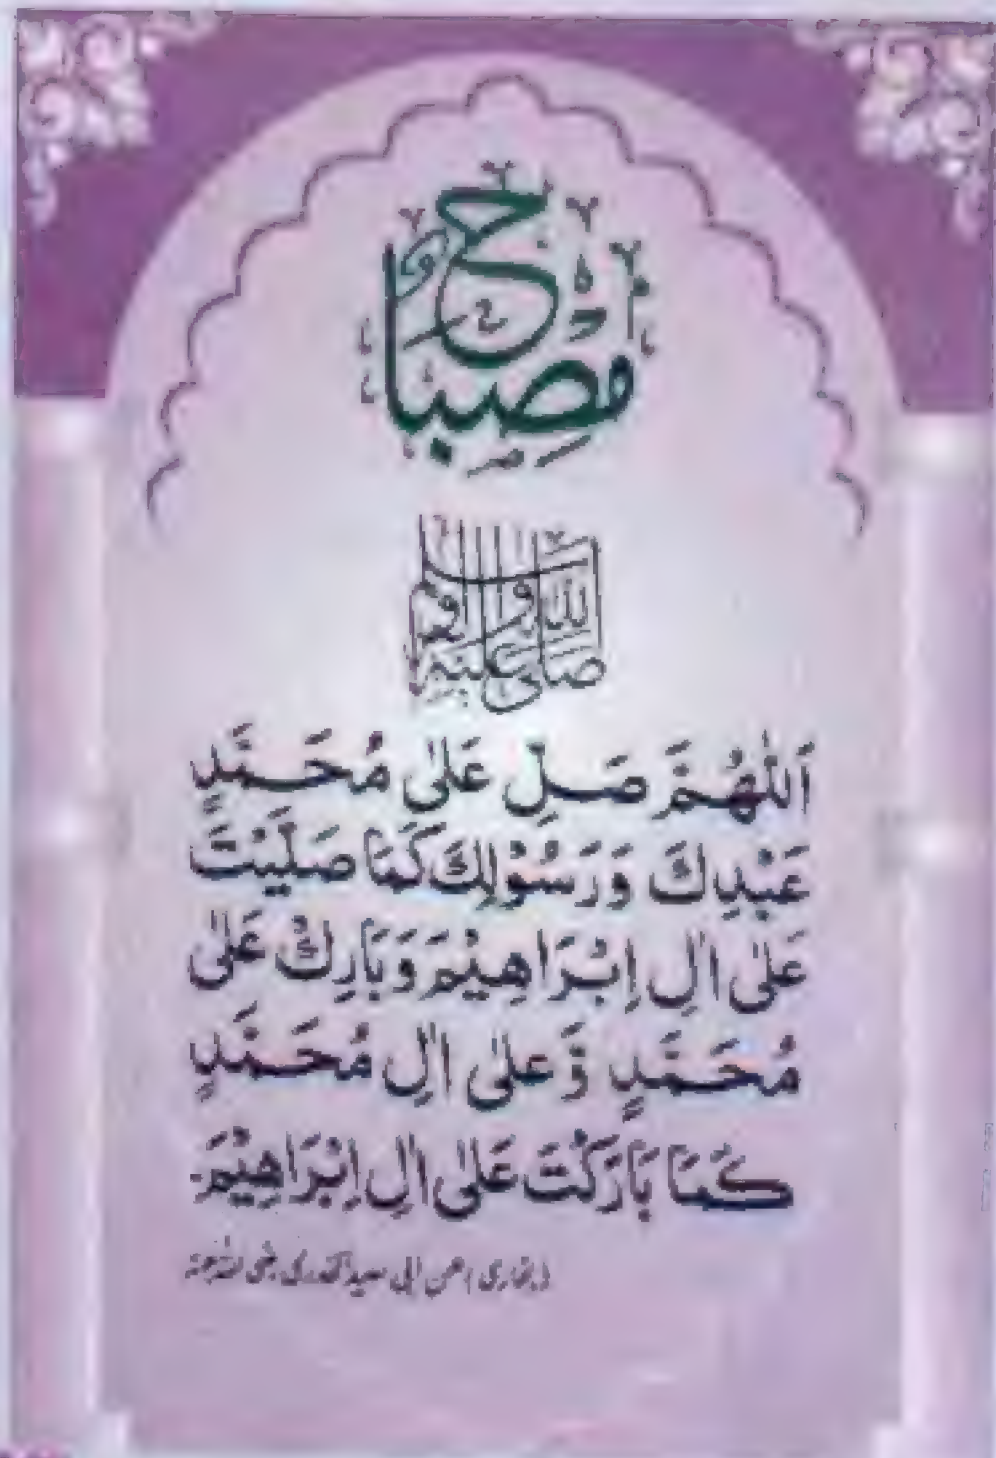 مِصْبَاحٌ
صلى الله عليه وسلم
اَللّٰهُمَّ صَلِّ عَلٰى مُحَمَّدٍ
عَبْدِكَ وَرَسُوْلِكَ كَمَا صَلَّيْتَ
عَلٰى اٰلِ اِبْرَاهِيْمَ وَبَارِكْ عَلٰى
مُحَمَّدٍ وَّعَلٰى اٰلِ مُحَمَّدٍ
كَمَا بَارَكْتَ عَلٰى اٰلِ اِبْرَاهِيْمَ۔
(بخاری) عن ابی سعید الخدری رضی اللہ عنہ